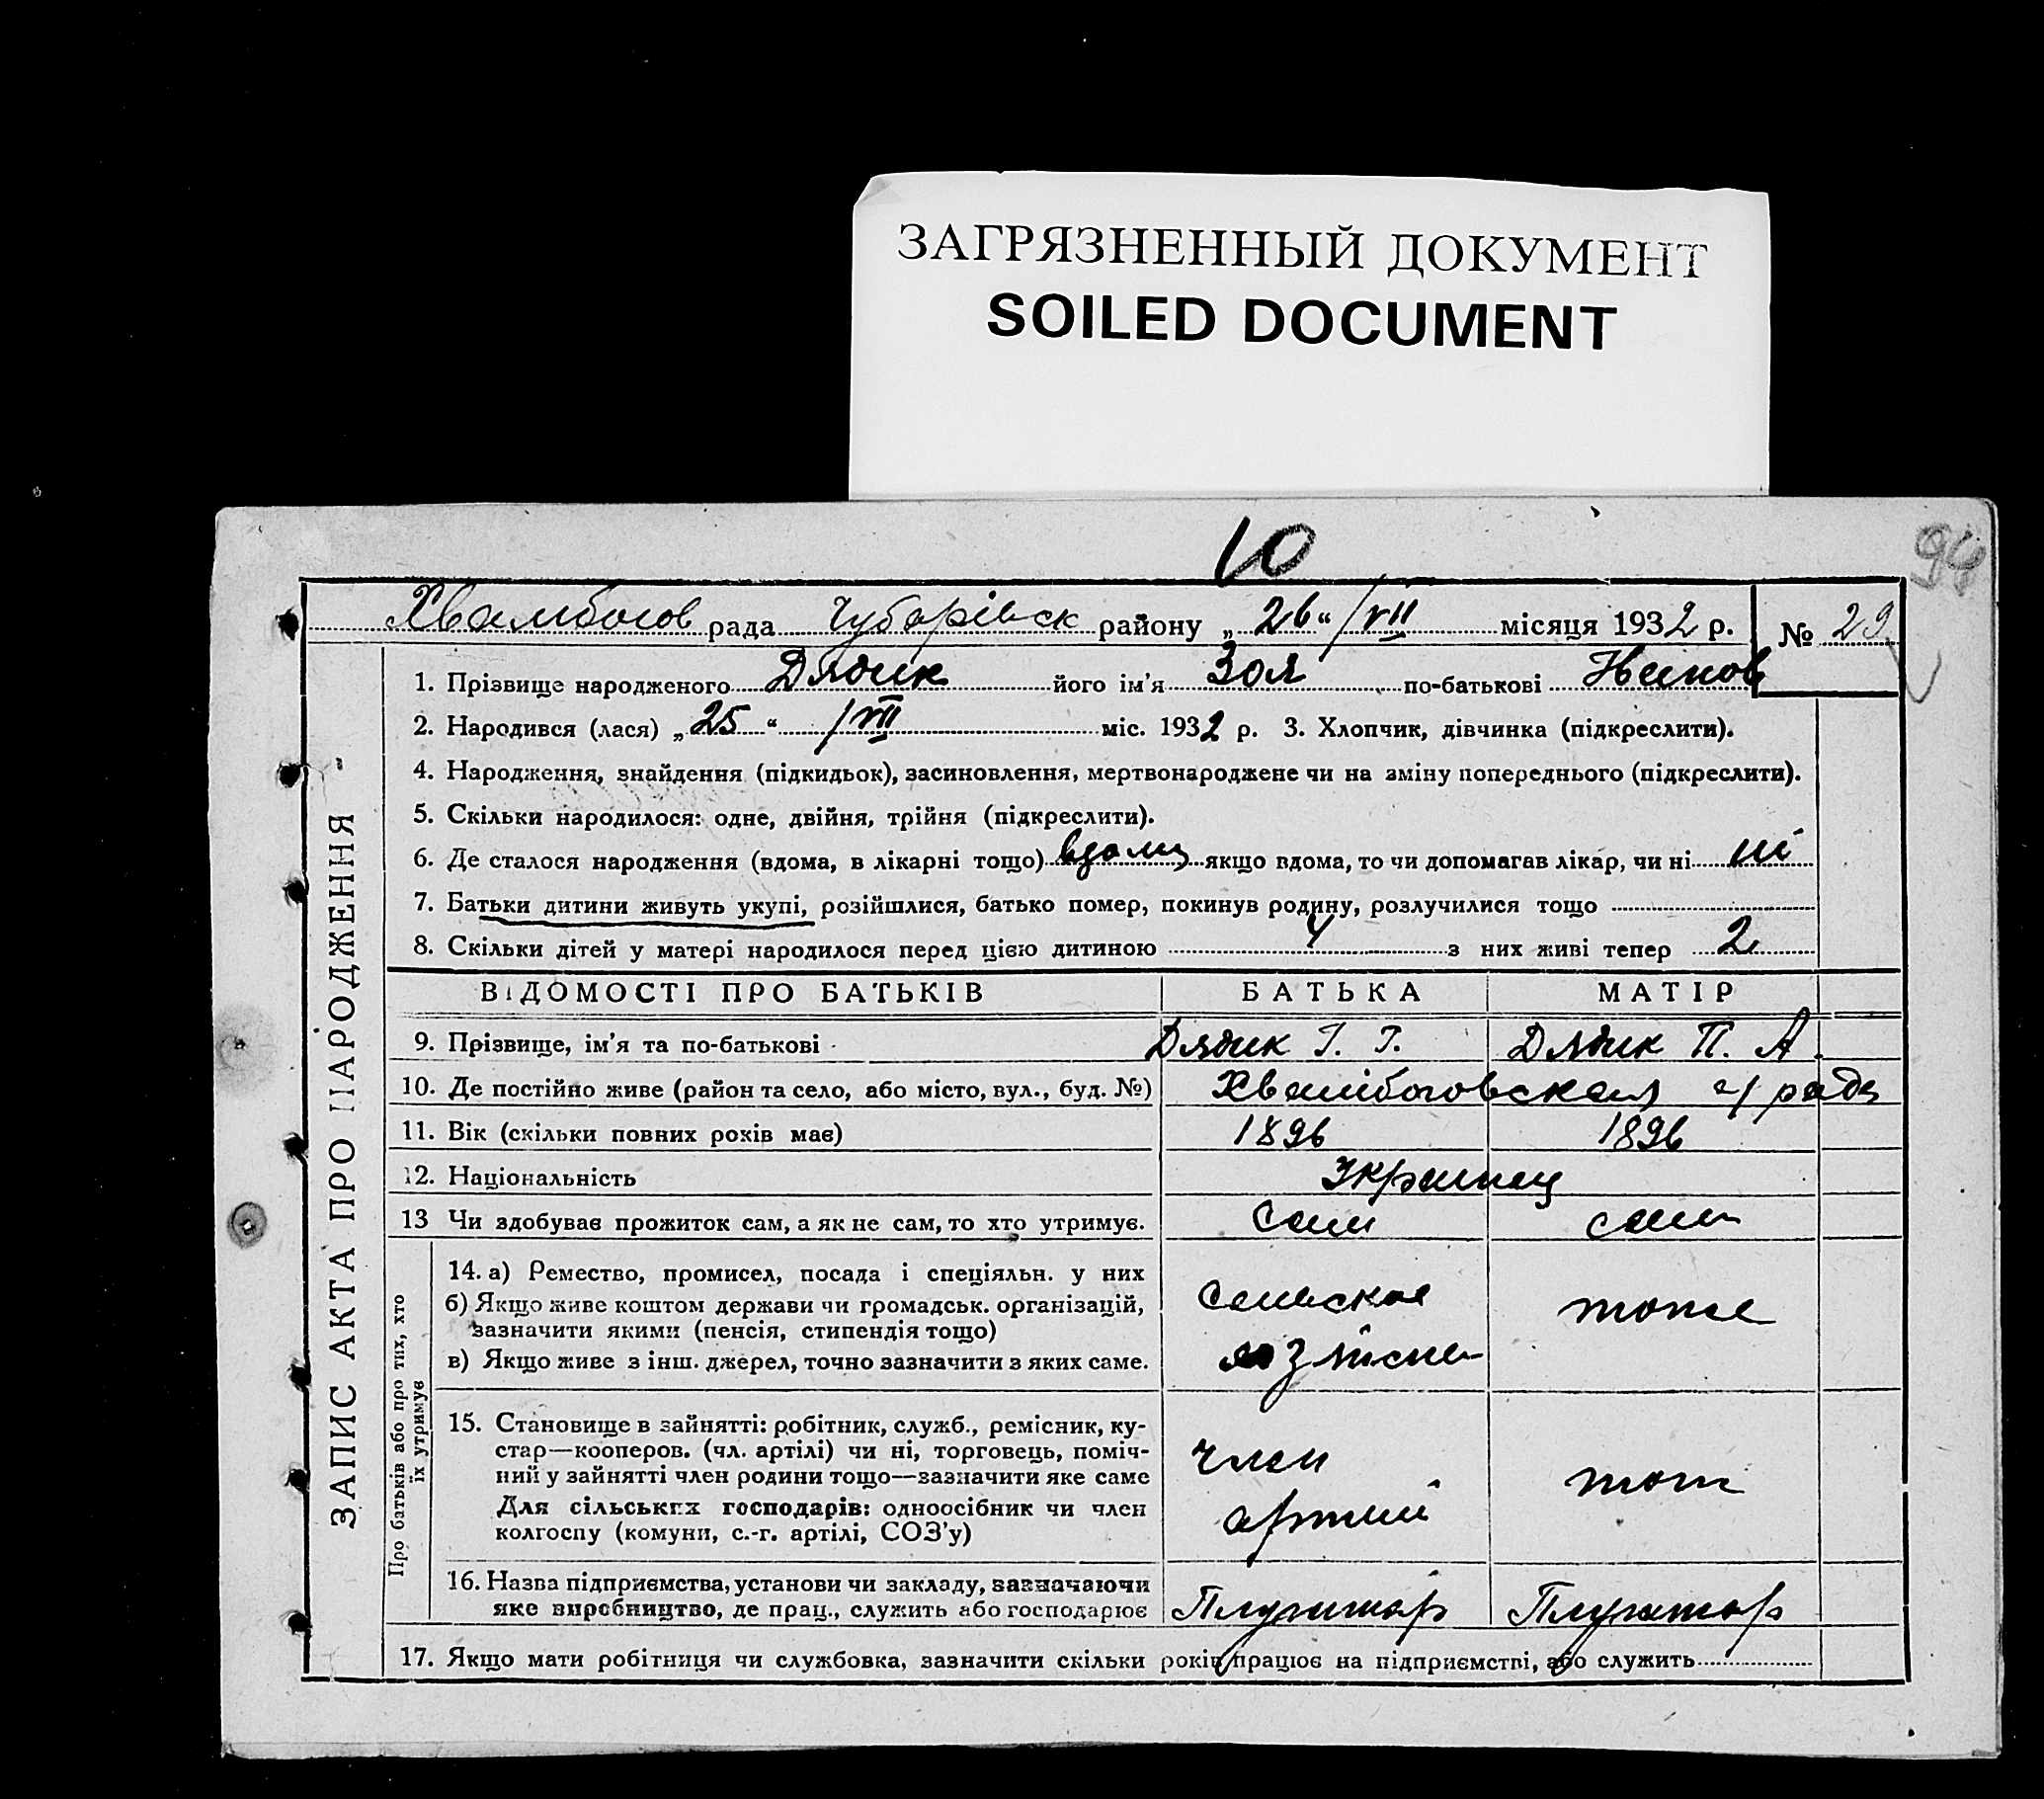 ЗАГРЯЗНЕННЫЙ ДОКУМЕНТ
SOILED DOCUMENT
10
94
рада Чубарівск району „26“ /VII місяця 1932 р. № 29
ЗАПИС АКТА ПРО НАРОДЖЕННЯ
1. Прізвище народженого Дядик його ім'я Зоя по-батькові
2. Народився (лася) „25“ /VII міс. 1932 р. 3. Хлопчик, дівчинка (підкреслити).
4. Народження, знайдення (підкидьок), засиновлення, мертвонароджене чи на зміну попереднього (підкреслити).
5. Скільки народилося: одне, двійня, трійня (підкреслити).
6. Де сталося народження (вдома, в лікарні тощо) вдома якщо вдома, то чи допомагав лікар, чи ні ні
7. Батьки дитини живуть укупі, розійшлися, батько помер, покинув родину, розлучилися тощо
8. Скільки дітей у матері народилося перед цією дитиною 4 з них живі тепер 2
ВІДОМОСТІ ПРО БАТЬКІВ БАТЬКА МАТІР
9. Прізвище, ім'я та по-батькові Дядик І. Г. Дядик П. А.
10. Де постійно живе (район та село, або місто, вул., буд. №) с/рада
11. Вік (скільки повних років має) 1896 1896
12. Національність Українец
13 Чи здобуває прожиток сам, а як не сам, то хто утримує. Сам сама
Про батьків або про тих, хто їх утримує
14. а) Ремество, промисел, посада і спеціяльн. у них
б) Якщо живе коштом держави чи громадськ. організацій,
зазначити якими (пенсія, стипендія тощо)
в) Якщо живе з інш. джерел, точно зазначити з яких саме.
Сельское
тоже
15. Становище в зайнятті: робітник, служб., ремісник, ку-
стар—кооперов. (чл. артілі) чи ні, торговець, поміч-
ний у зайнятті член родини тощо—зазначити яке саме
Для сільських господарів: одноосібник чи член
колгоспу (комуни, с.-г. артілі, СОЗ'у)
член
артілі
16. Назва підприємства, установи чи закладу, зазначаючи
яке виробництво, де прац., служить або господарює
17. Якщо мати робітниця чи службовка, зазначити скільки років працює на підприємстві, або служить